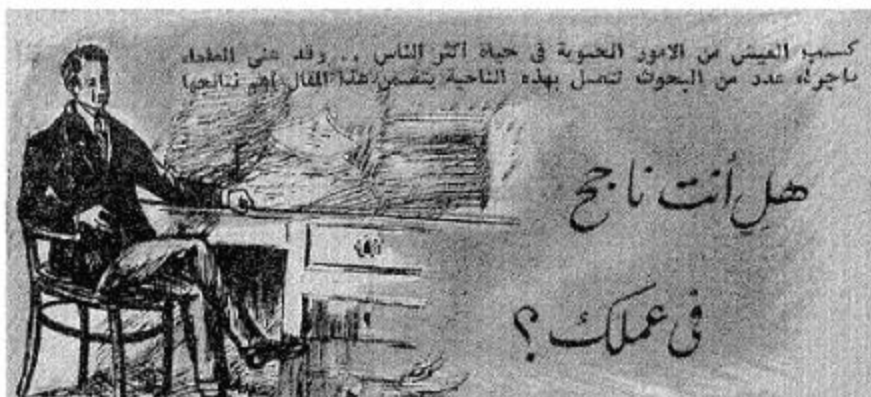 كسب العيش من الامور الحيوية في حياة اكثر الناس .. وقد عنى العلماء
باجراء عدد من البحوث تتصل بهذه الناحية يتضمن هذا المقال اهم نتائجها
هل أنت ناجح
فى عملك ؟